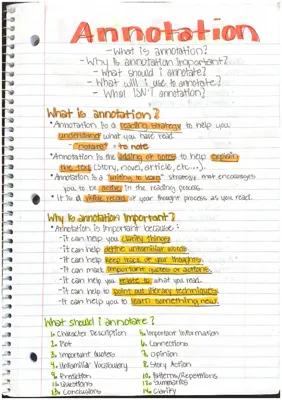 Annotation
- What is annotation?
- Why is annotation important?
- What should i annotate?
- What will i use to annotate?
- What ISN't annotation?
What is annotation?
• Annotation is a reading strategy to help you
understand what you have read.
"notate" = to note
• Annotation is the adding of notes to help explain
the text (story, novel, article, etc...).
• Annotation is a "writing to learn" strategy that encourages
you to be active in the reading process.
• It is a visible record of your thought process as you read.
Why is annotation important?
• Annotation is important because:
- It can help you clarify things
- It can help define unfamiliar words
- It can help keep track of your thoughts.
- It can mark important quotes or actions.
- It can help you relate to what you read.
- It can help to point out literary techniques.
- It can help you to learn something new.
What should i annotate?
1. Character Description
2. Plot
3. Important Quotes
4. Unfamiliar Vocabulary
9. Prediction
11. Questions
13. Conclusions
5. Important Information
6. Connections
7. Opinion
8. Story Action
10. Patterns/Repetitions
12. Summaries
14. Clarify